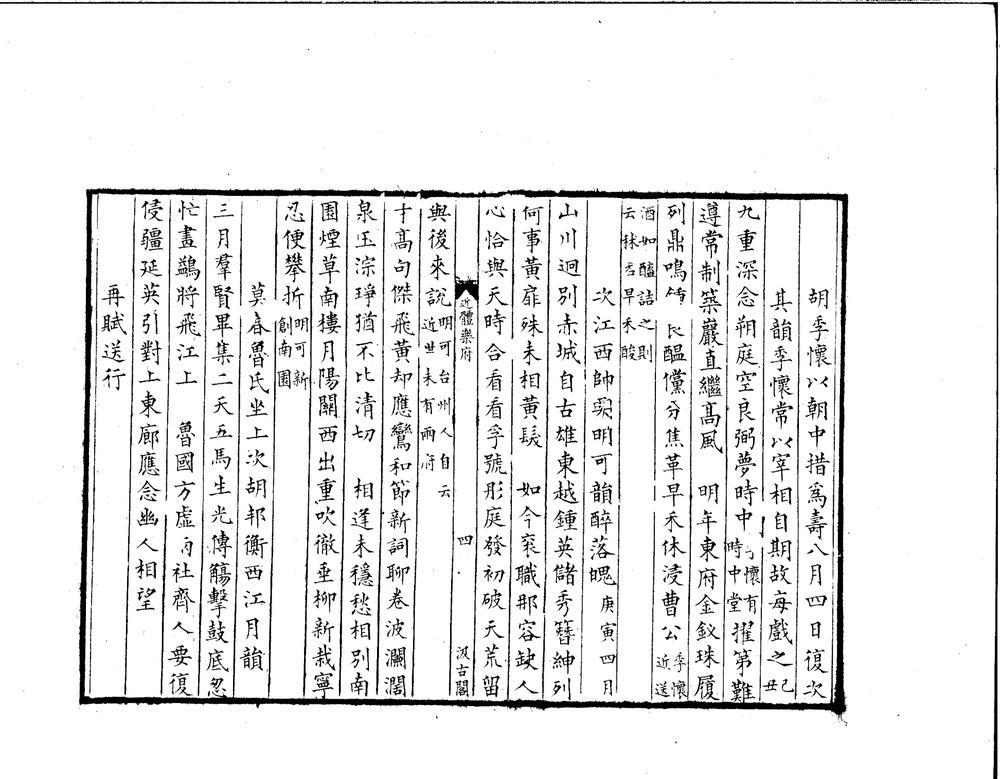 胡季懷以朝中措爲壽八月四日復次
其韻季懷常以宰相自期故每戲之己丑
九重深念朔庭空良弼夢時中季懷有時中堂擢第難
遵常制築巖直繼髙風　明年東府金釵珠履
列鼎鳴鍾　醖儻分焦革早禾休浸曹公季懷近送
酒如醯詰之則云秫杏早禾酸
次江西帥吳明可韻醉落魄庚寅四月
山川迴別赤城自古雄東越鍾英儲秀簪紳列
何事黃扉殊未相黃髮　如今衮職那容缺人
心恰與天時合看看孚號彤庭發初破天荒留
近體樂府　四　汲古閣
與後來說明可台州人自云近世未有兩府
才髙句傑飛黃却應鸞和節新詞聊卷波瀾濶
泉玉淙琤猶不比清切　相逢未穩愁相別南
園煙草南樓月陽關西出重吹徹垂柳新栽寧
忍便攀折明可新創南園
莫春魯氏坐上次胡邦衡西江月韻
三月羣賢畢集二天五馬生光傳觴擊鼓底忽
忙畫鷁將飛江上　魯國方虛右社齊人要復
侵疆延英引對上東廊應念幽人相望
再賦送行